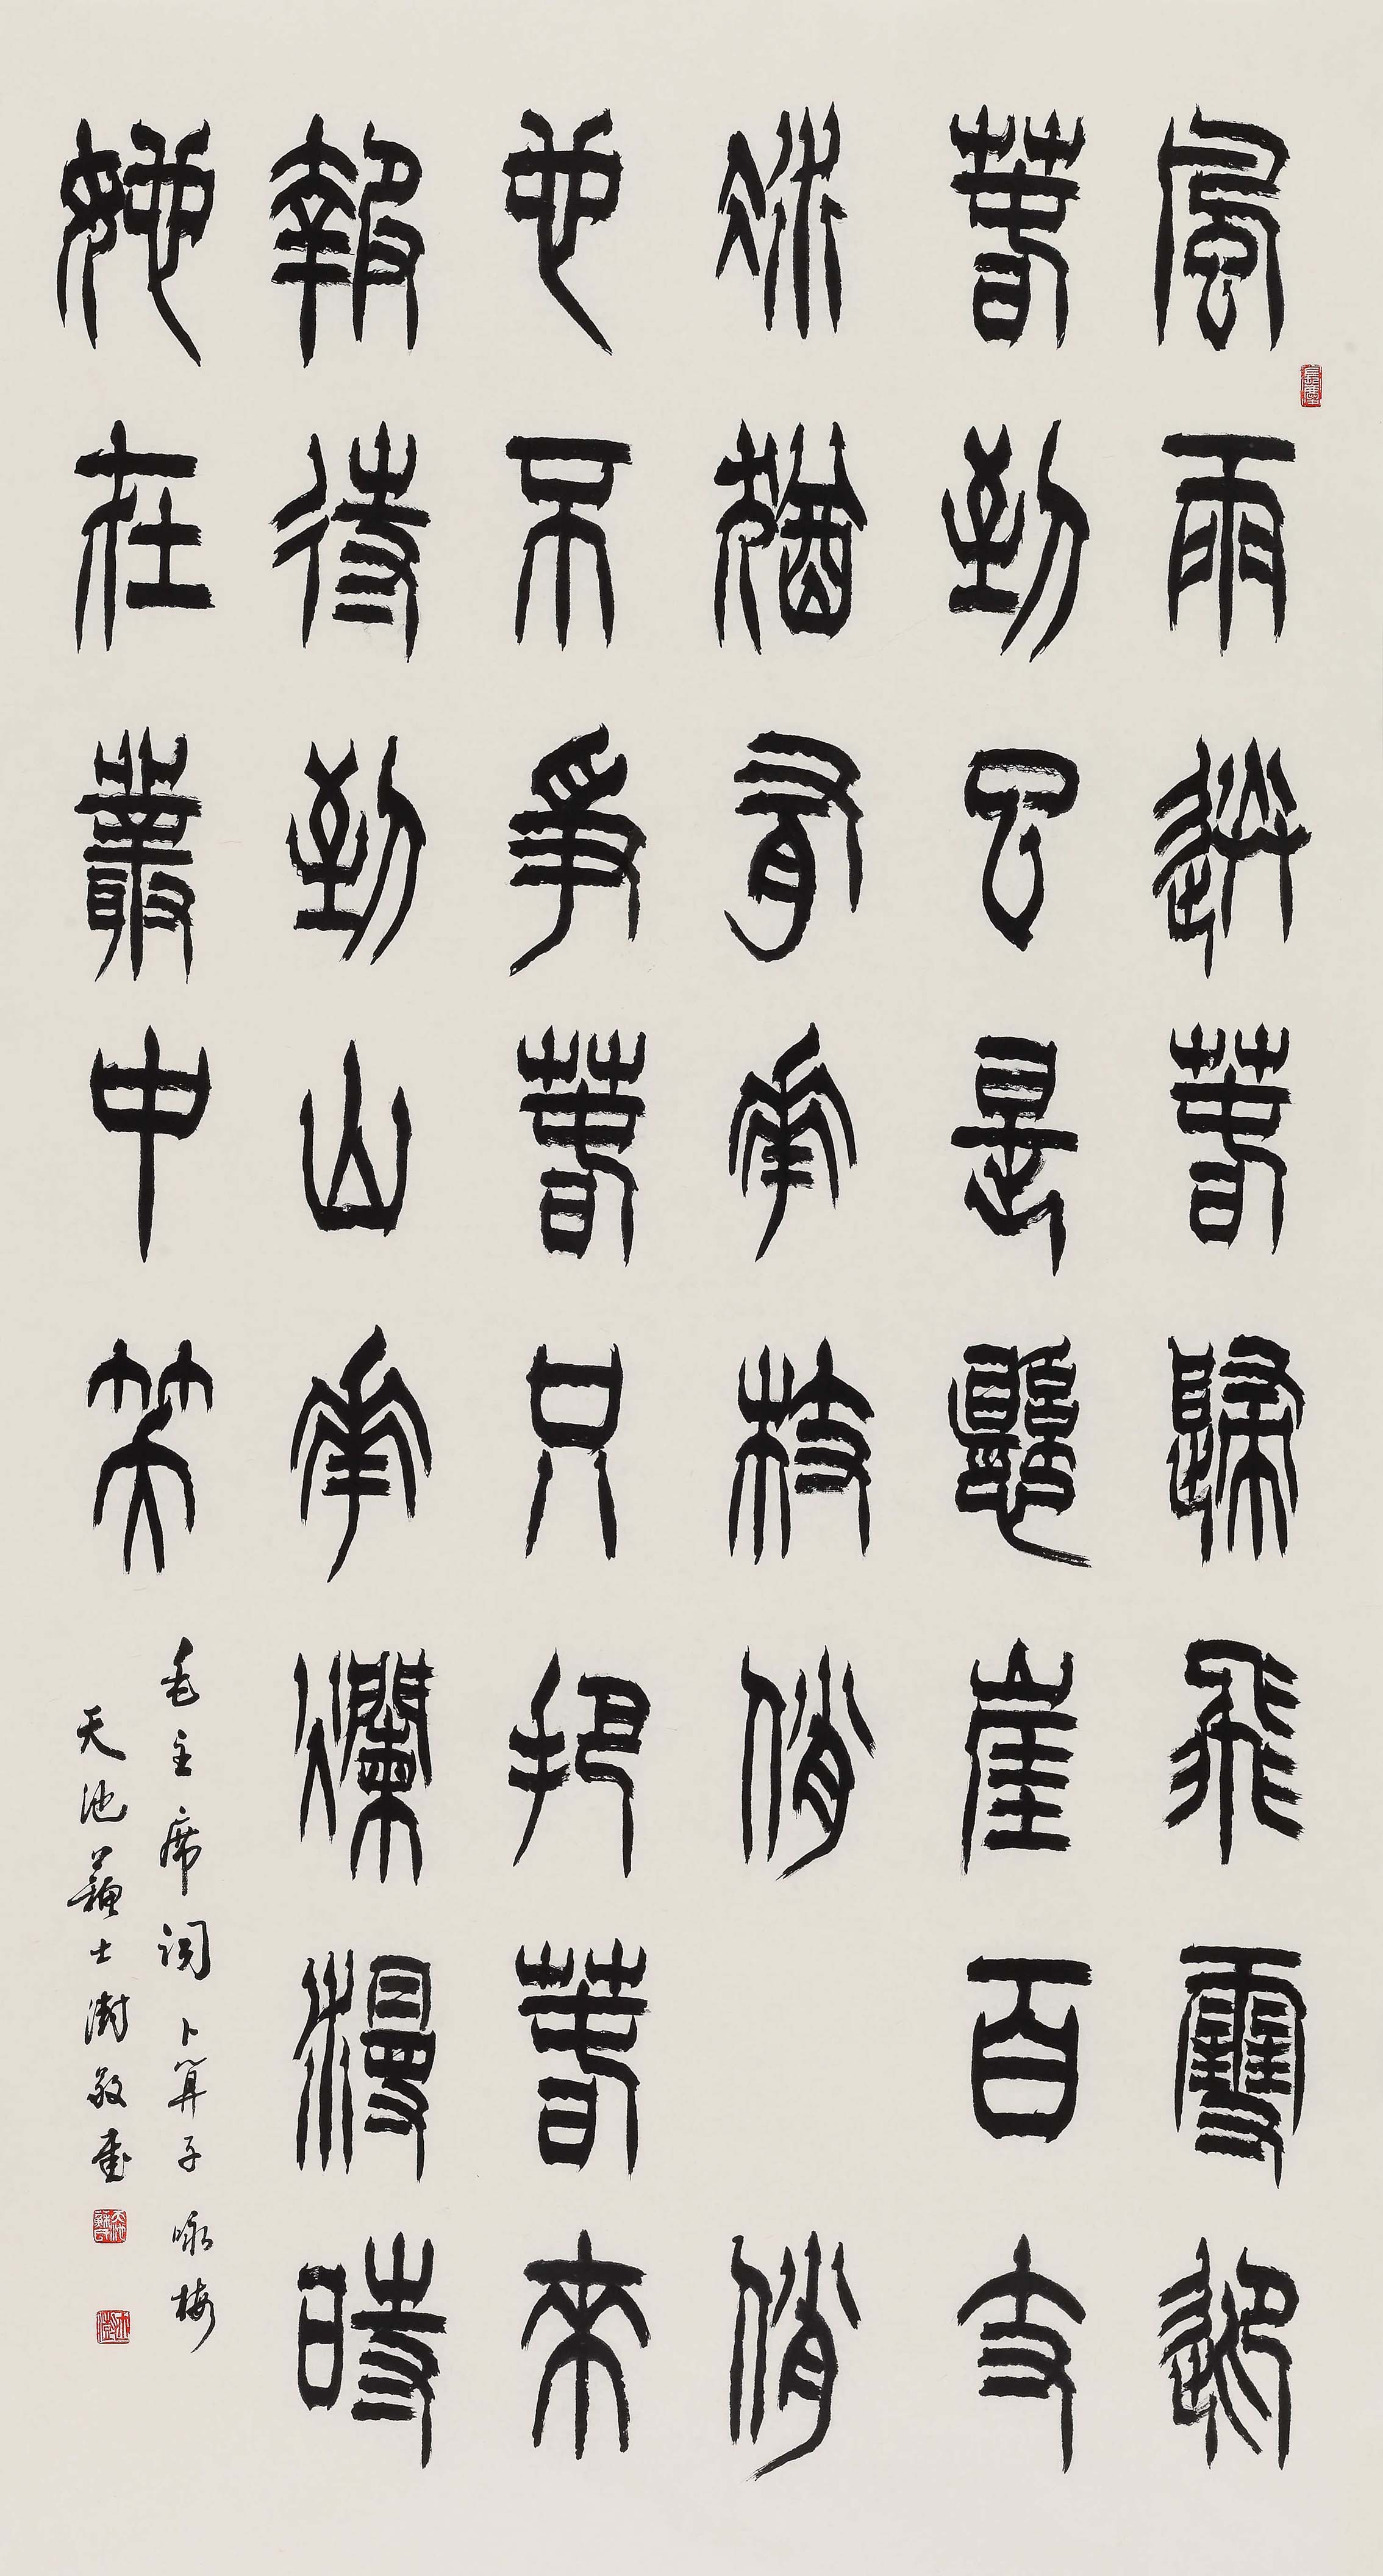 風雨送春歸飛雪迎
春到已是懸崖百丈
冰猶有花枝俏 俏
也不爭春只把春來
報待到山花爛漫時
她在叢中笑
毛主席詞卜算子咏梅
天池蘇士澍敬書